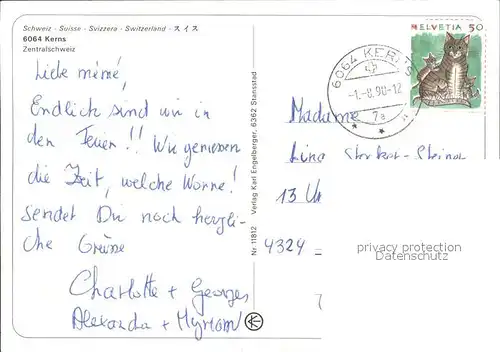 Schweiz · Suisse · Svizzera · Switzerland · スイス
6064 Kerns
Zentralschweiz
Liebe mémé,
Endlich sind wir in
den Ferien!! Wir geniessen
die Zeit, welche Wonne!
Sendet Dir noch herzli-
che Grüsse
Charlotte + Georges
Alexandra + Myriam
Nr. 11812 Verlag Karl Engelberger, 6362 Stansstad
HELVETIA 50
6064 KERNS
-1.-8.90-12
7a
Madame
Lina
13
4324
privacy protection
Datenschutz